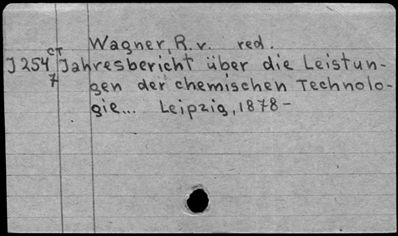 Wagner, R. v. red.
CT
J 254 Jahresbericht über die Leistun-
7 gen der chemischen Technolo-
gie... Leipzig, 1878-